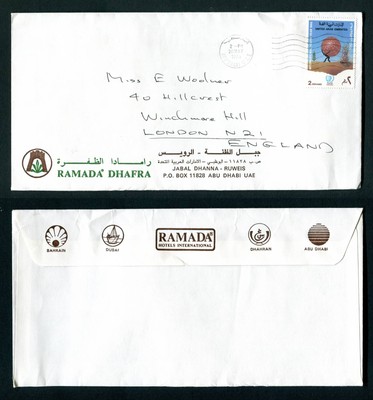 Miss E Wodner
40 Hillcrest
Winchmore Hill
LONDON N21
ENGLAND
UNITED ARAB EMIRATES
2
رامادا الظفرة
RAMADA DHAFRA
جبل الظنة - الرويس
ص.ب ١١٨٢٨ - أبوظبي - الامارات العربية المتحدة
JABAL DHANNA - RUWEIS
P.O. BOX 11828 ABU DHABI UAE
BAHRAIN
DUBAI
RAMADA
HOTELS INTERNATIONAL
DHAHRAN
ABU DHABI